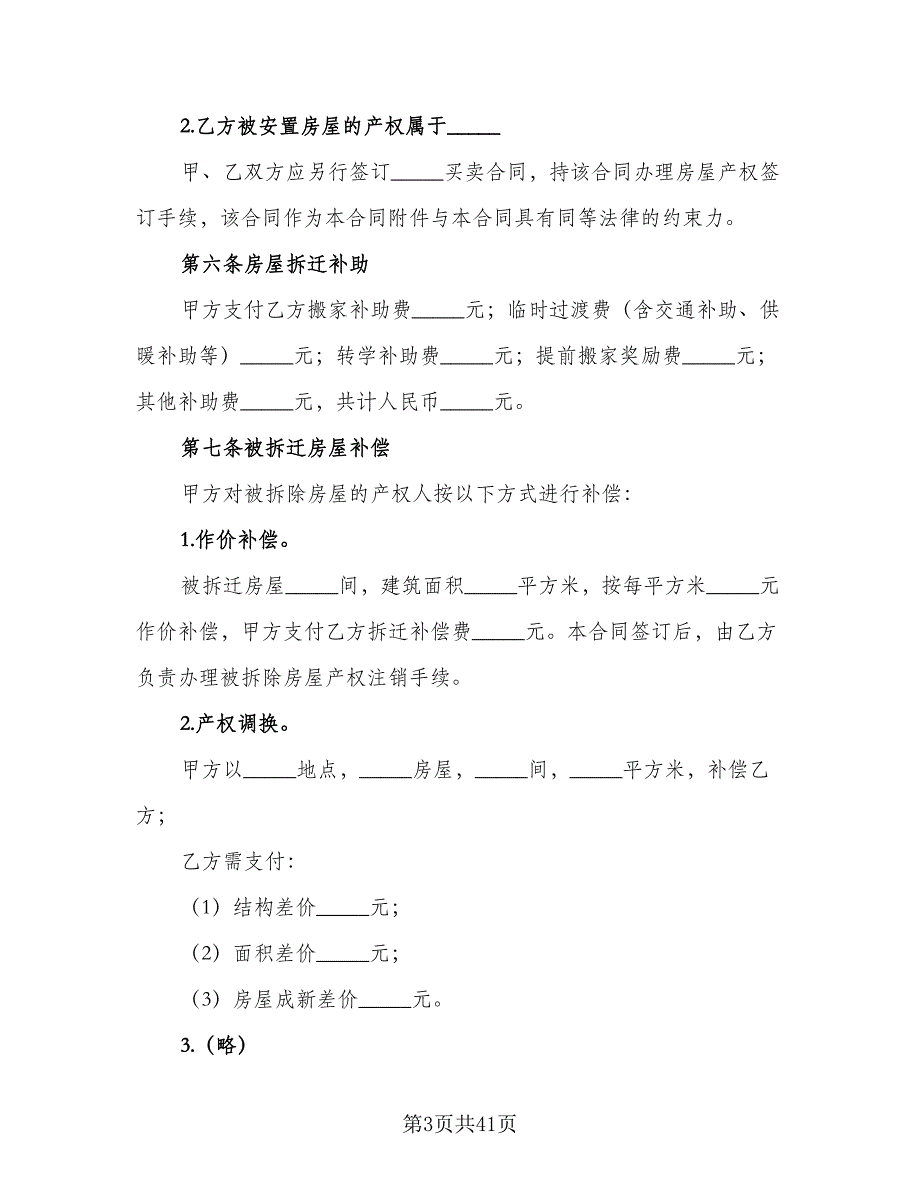 2.乙方被安置房屋的产权属于_____
甲、乙双方应另行签订_____买卖合同，持该合同办理房屋产权签
订手续，该合同作为本合同附件与本合同具有同等法律的约束力。
第六条房屋拆迁补助
甲方支付乙方搬家补助费_____元；临时过渡费（含交通补助、供
暖补助等）_____元；转学补助费_____元；提前搬家奖励费_____元；
其他补助费_____元，共计人民币_____元。
第七条被拆迁房屋补偿
甲方对被拆除房屋的产权人按以下方式进行补偿：
1.作价补偿。
被拆迁房屋_____间，建筑面积_____平方米，按每平方米_____元
作价补偿，甲方支付乙方拆迁补偿费_____元。本合同签订后，由乙方
负责办理被拆除房屋产权注销手续。
2.产权调换。
甲方以_____地点，_____房屋，_____间，_____平方米，补偿乙
方；
乙方需支付：
（1）结构差价_____元；
（2）面积差价_____元；
（3）房屋成新差价_____元。
3.（略）
第3页共41页